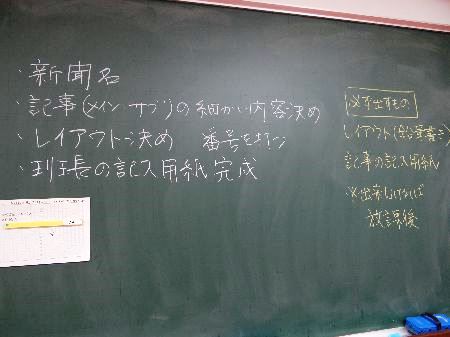 ・新聞名
・記事(メイン・サブ)の細かい内容決め
・レイアウト決め 番号を打つ
・班長の記入用紙完成
必ず出すもの
レイアウト(
記事の記入用紙
※出来なければ
放課後